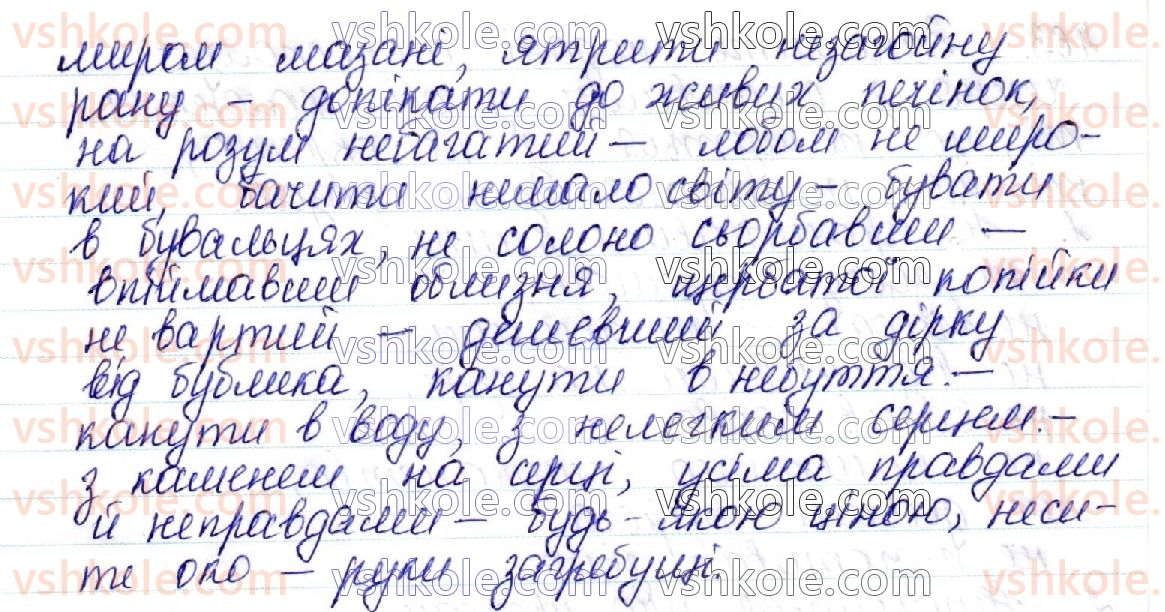 миром мазані, ятрити незагойну
рану – допікати до живих печінок,
на розум небагатий – лобом не широ-
кий, бачити нимало світу – бувати
в бувальцях, не солоно сьорбавши –
впіймавши облизня, щербатої копійки
не вартий – дешевший за дірку
від бублика, канути в небуття. –
канути в воду, з нелегким серцем. –
з каменем на серці, усіма правдами
й неправдами – будь-якою ціною, неси-
те око – руки загребущі.
vshkole.com